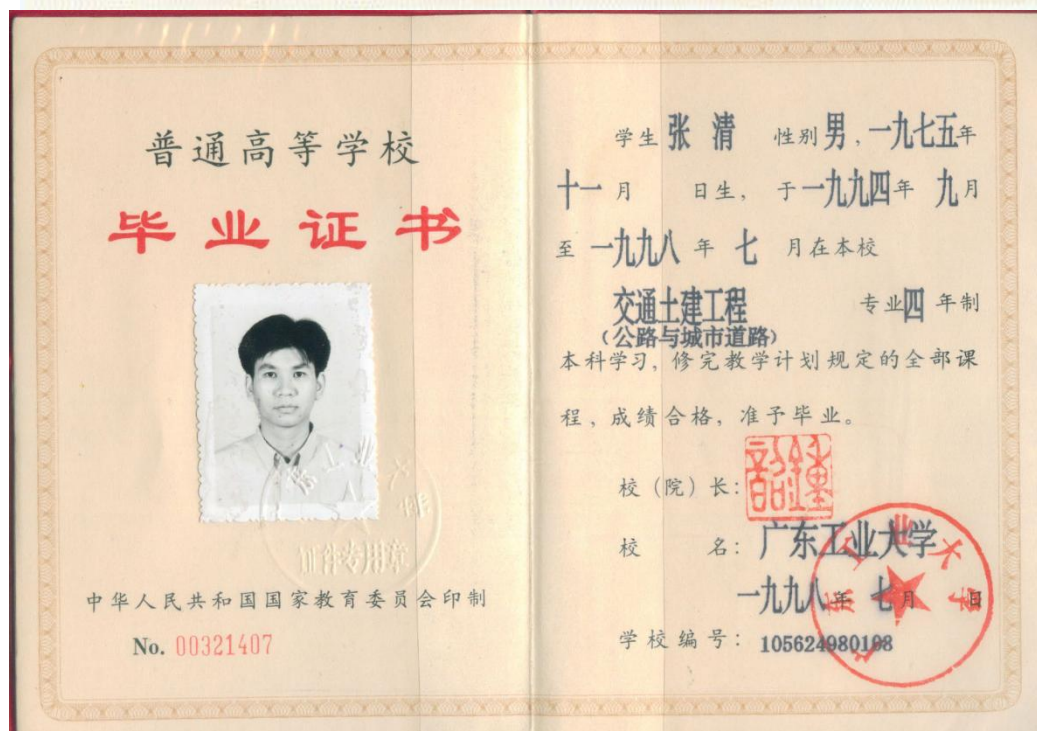 普通高等学校
毕业证书
证件专用章
中华人民共和国国家教育委员会印制
No. 00321407
学生 张清 性别 男，一九七五年
十一月 日生，于一九九四年 九月
至 一九九八 年 七 月在本校
交通土建工程 专业 四 年制
（公路与城市道路）
本科学习，修完教学计划规定的全部课
程，成绩合格，准予毕业。
校（院）长：
校 名：广东工业大学
一九九八年 七月 日
学校编号：105624980198
广东工业大学